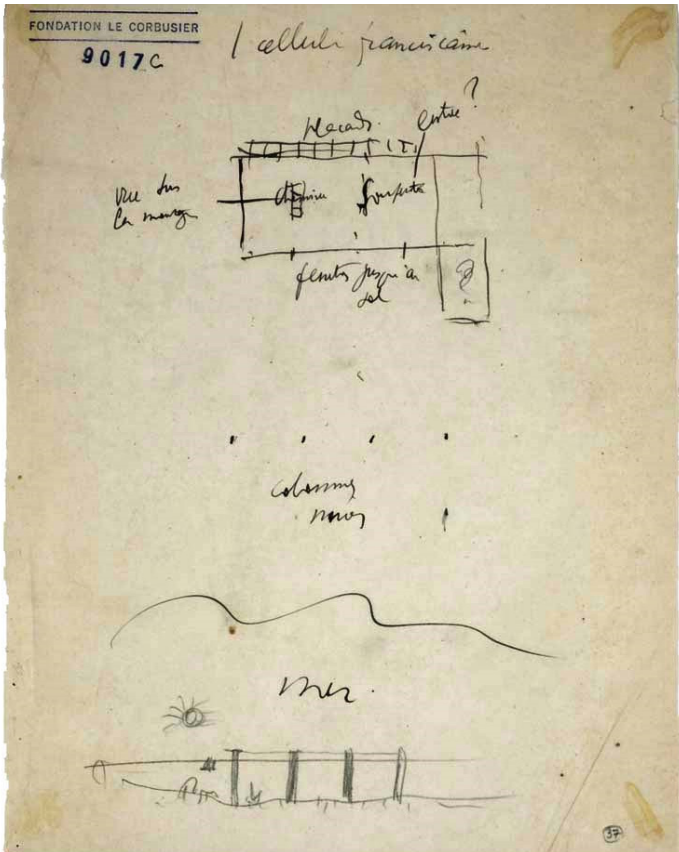 FONDATION LE CORBUSIER
9017C
1 cellule franciscaine
placards
entrée ?
vue sur
la montagne
cheminée
fenêtres jusqu'au
sol
colonnes
noires
mer.
37